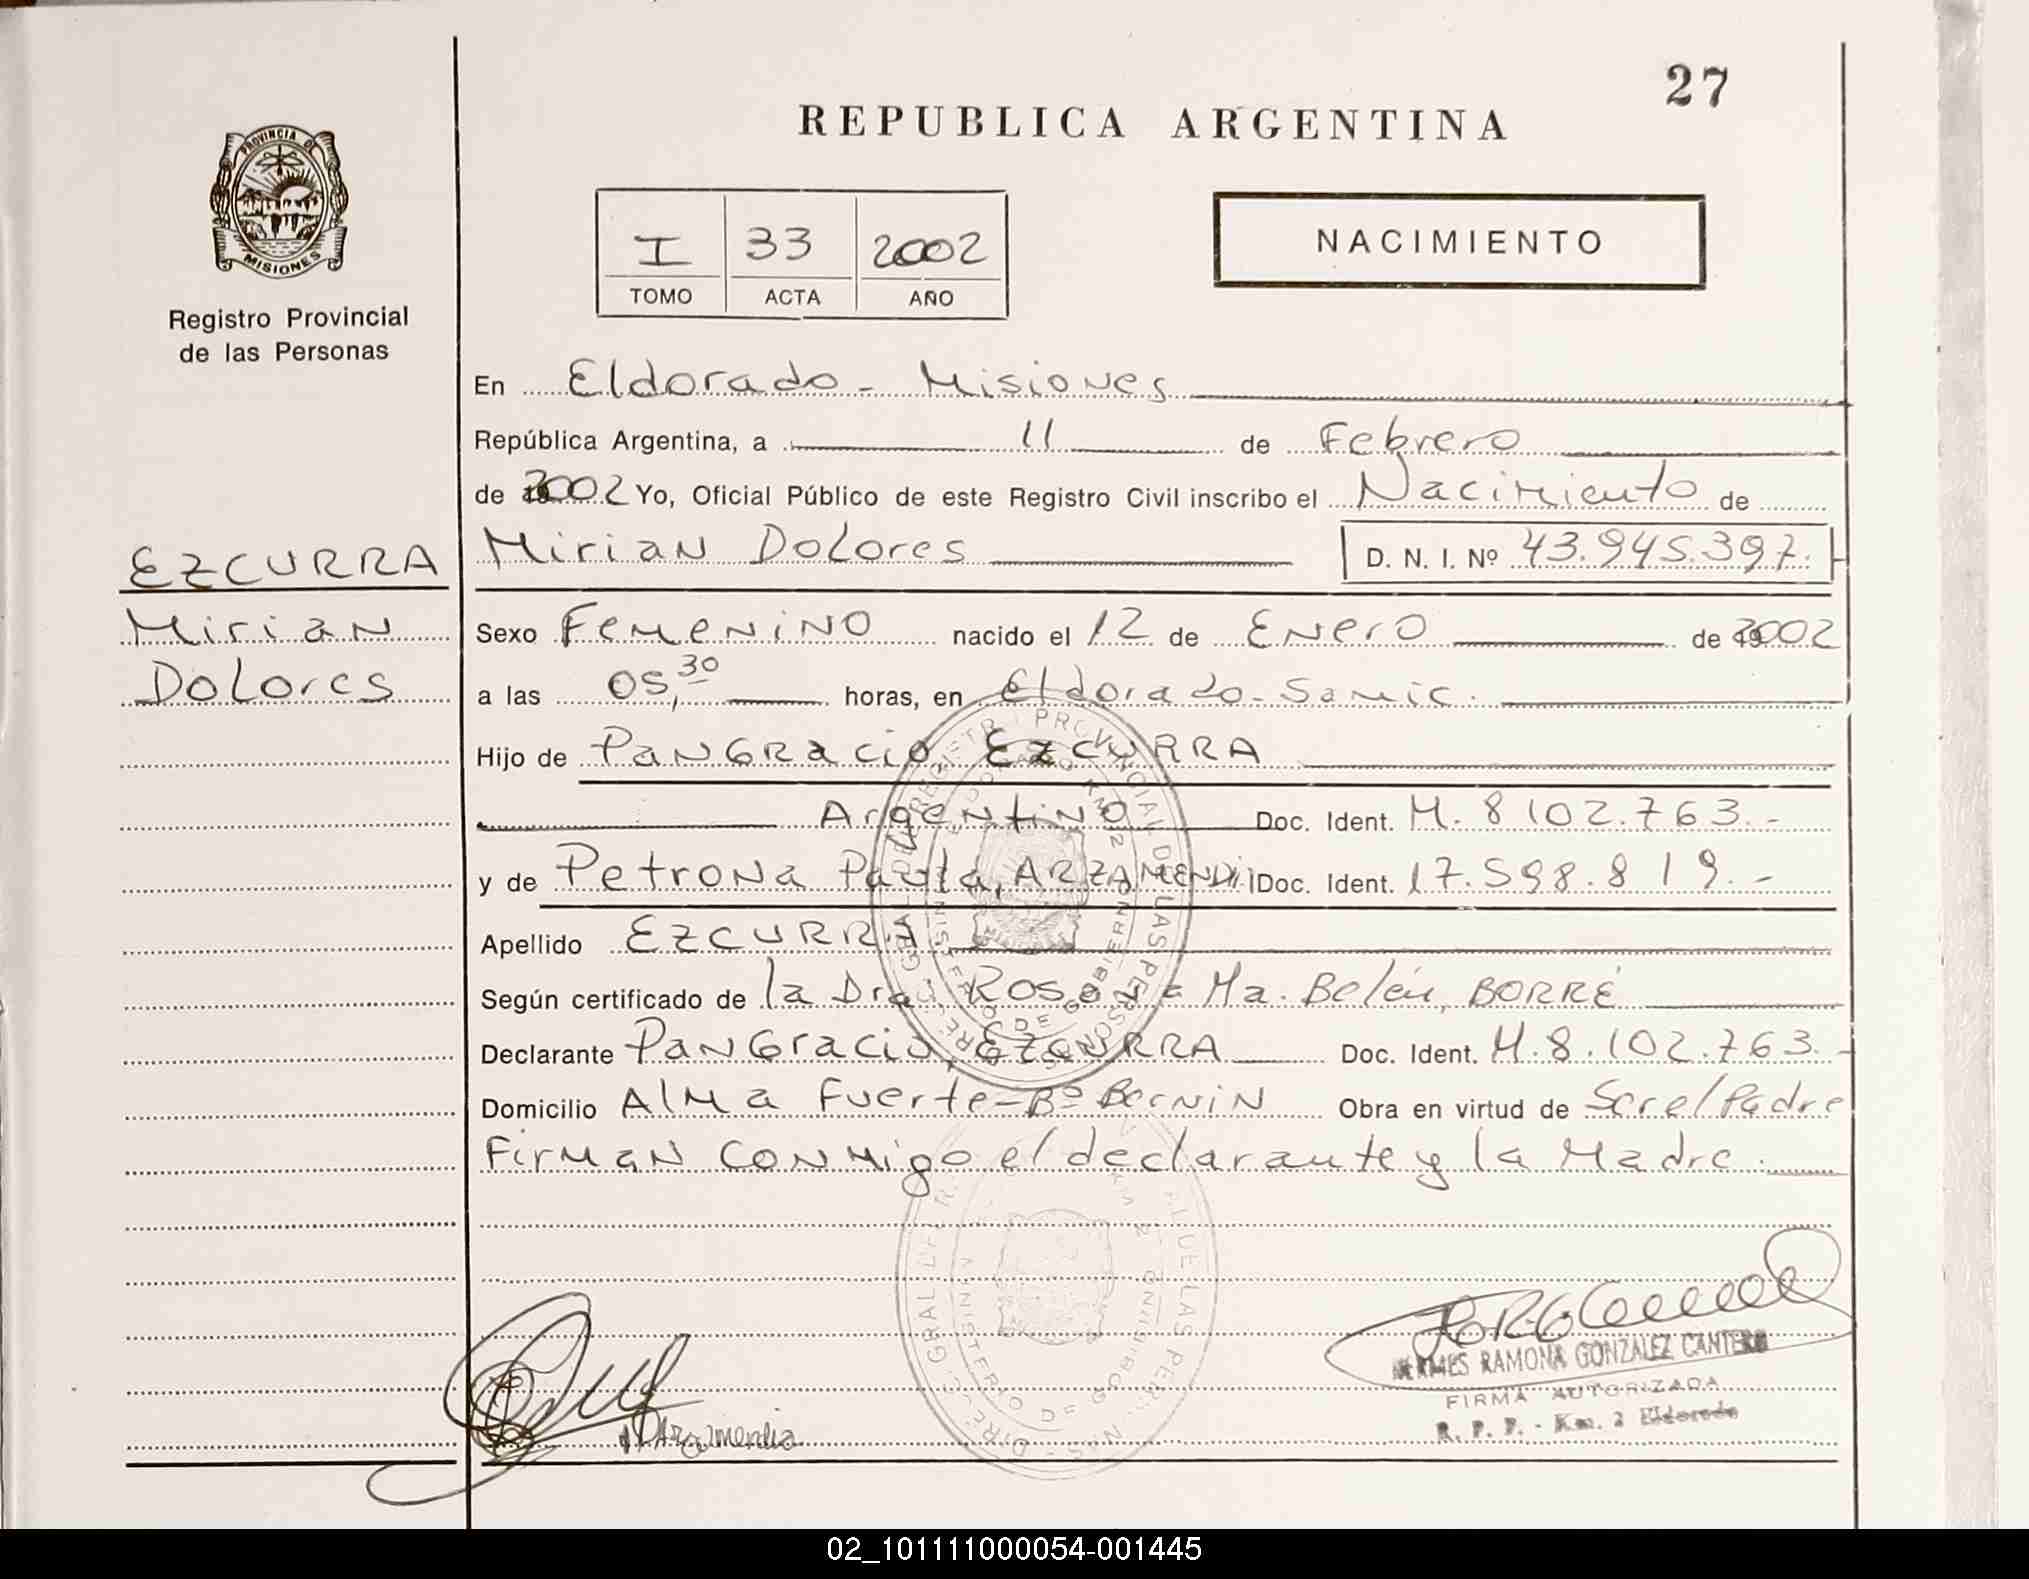 27
REPUBLICA ARGENTINA
PROVINCIA DE
MISIONES
Registro Provincial
de las Personas
I 33 2002
TOMO ACTA AÑO
NACIMIENTO
En Eldorado - Misiones
República Argentina, a 11 de Febrero
de 2002 Yo, Oficial Público de este Registro Civil inscribo el Nacimiento de
EZCURRA
Mirian
Dolores
Mirian Dolores D. N. I. Nº 43.945.397.
Sexo Femenino nacido el 12 de Enero de 2002
a las 05,30 horas, en Eldorado - Samic.
Hijo de Pangracio, EZCURRA
Argentino Doc. Ident. M. 8102.763.-
y de Petrona Paula, ARZAMENDIA Doc. Ident. 17.598.819.-
Apellido EZCURRA
Según certificado de la Dra. Rosana Ma. Belén, BORRÉ
Declarante Pangracio, EZCURRA Doc. Ident. M.8.102.763.-
Domicilio Alma Fuerte - Bº Bernin Obra en virtud de Ser el Padre
Firman conmigo el declarante y la Madre.
HERMES RAMONA GONZALEZ CANTERO
FIRMA AUTORIZADA
R. P. P. - Km. 2 Eldorado
02_101111000054-001445